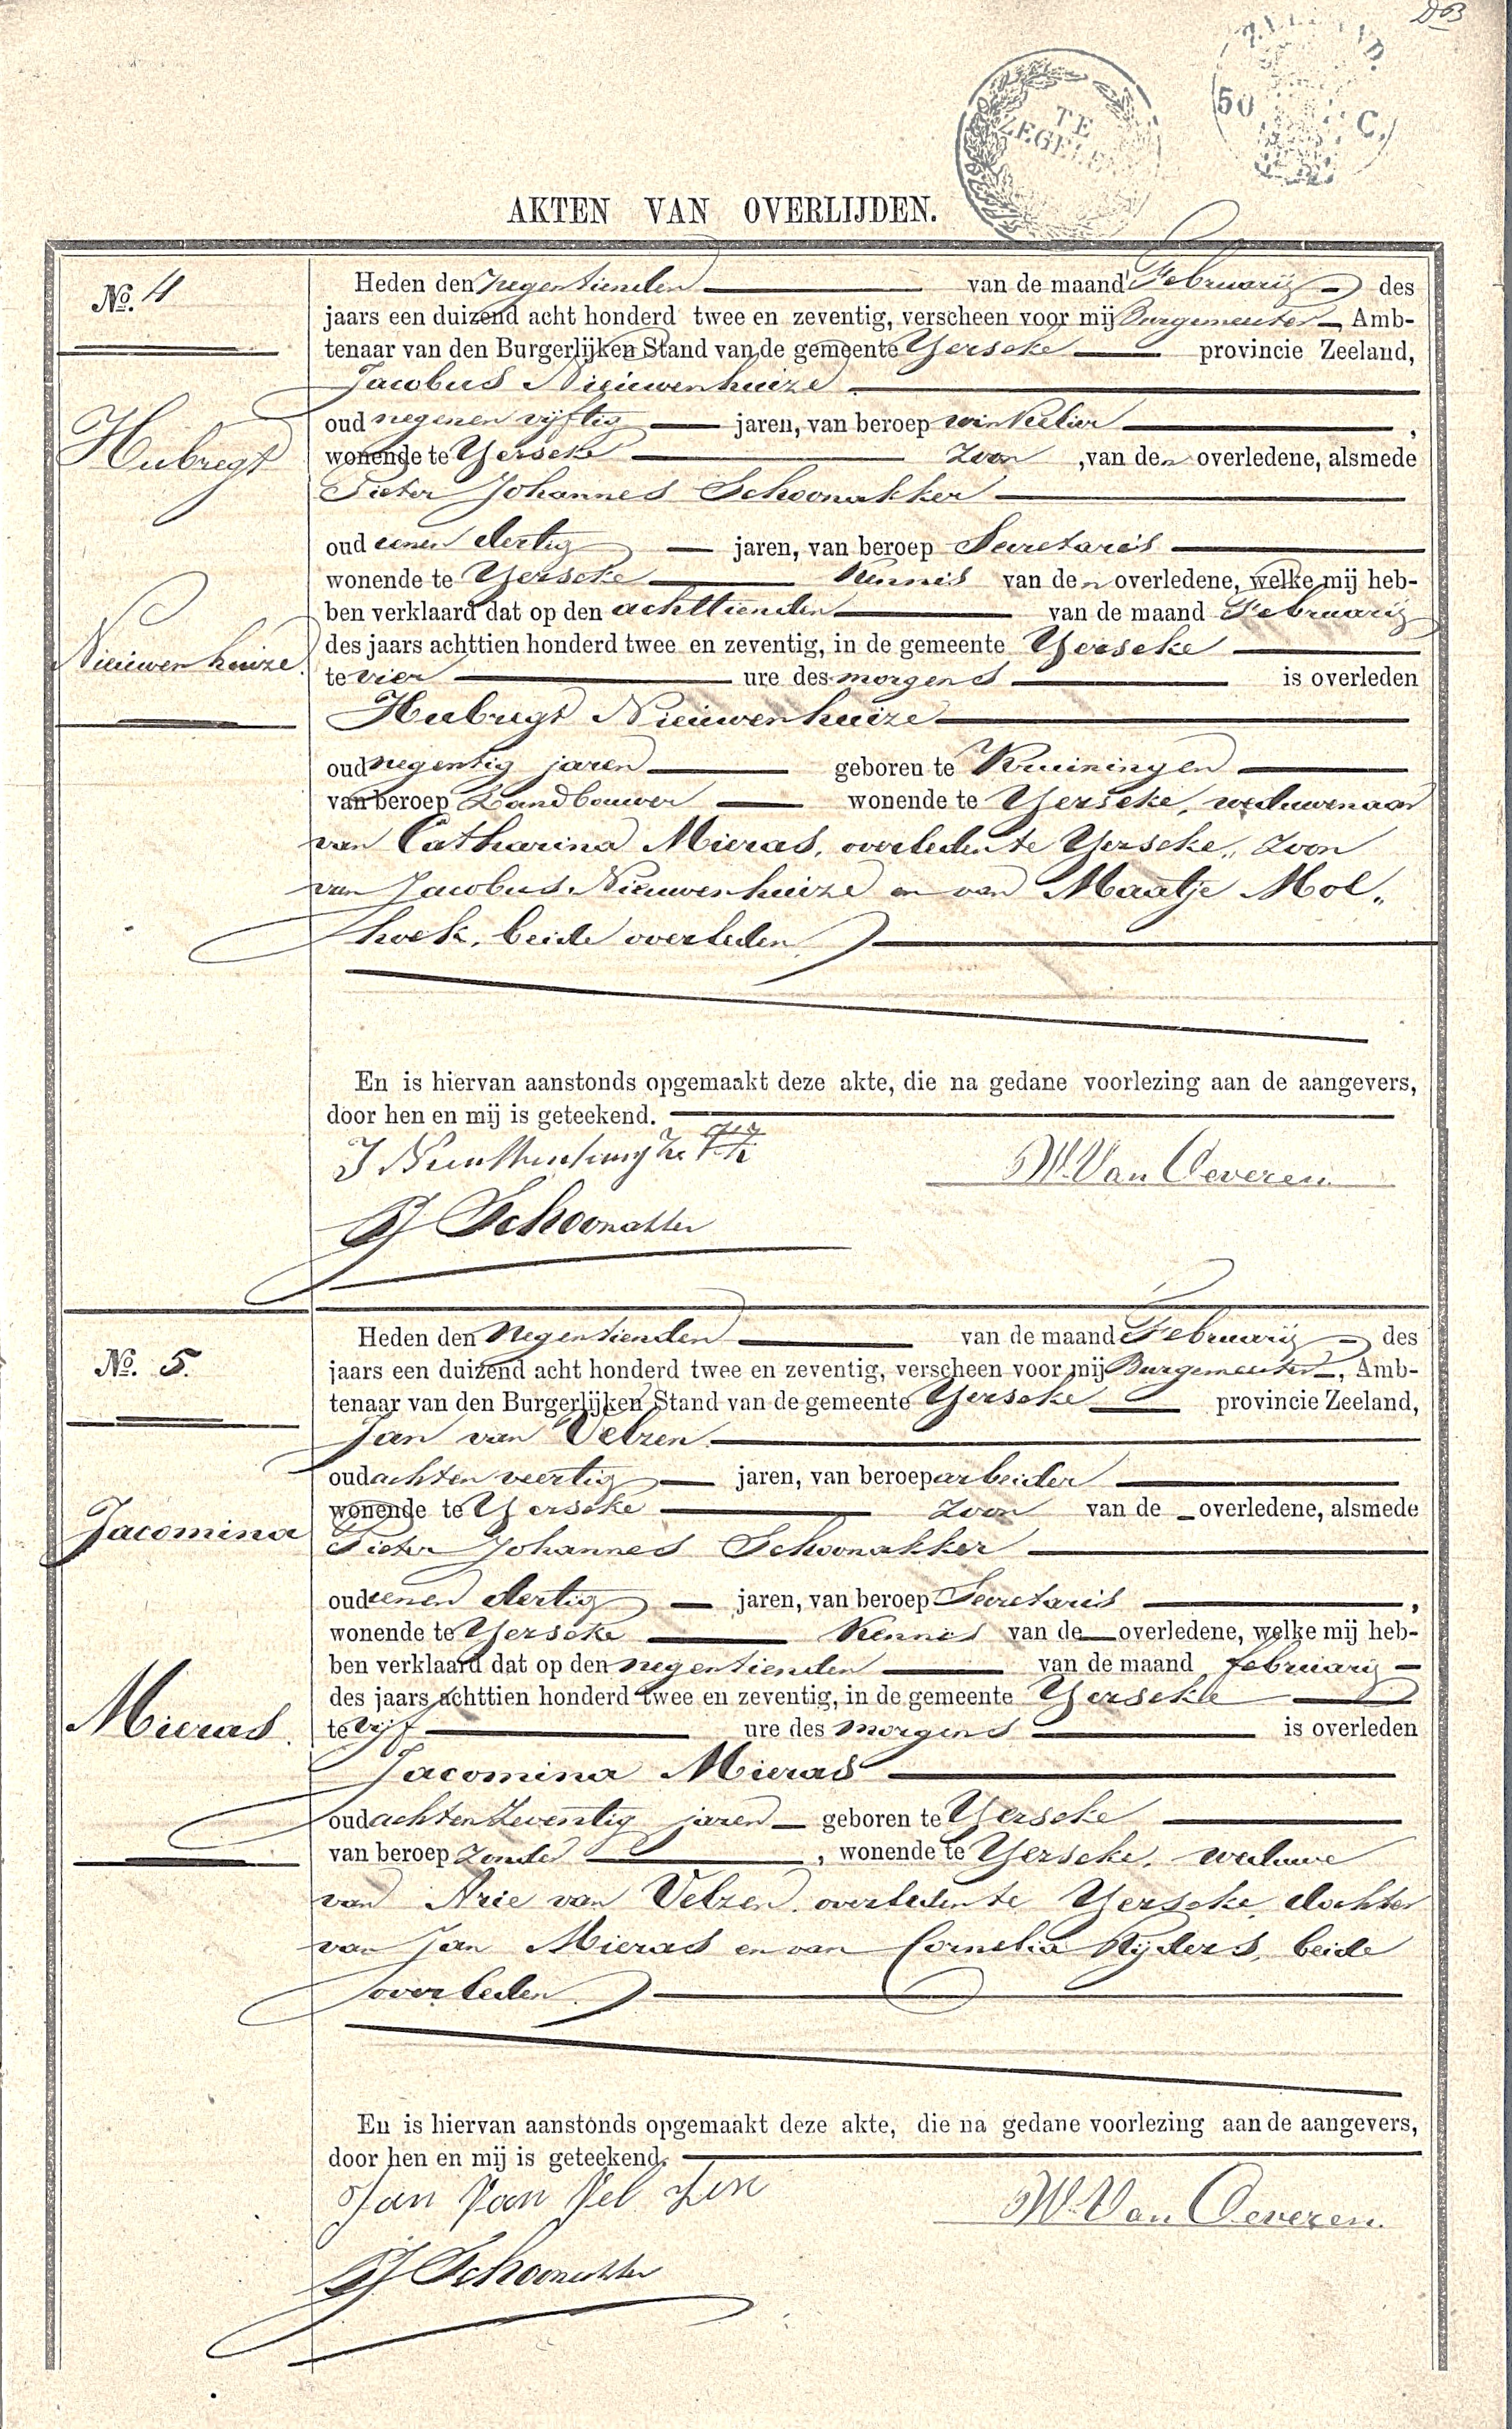 DB
TE
ZEGELEN
50 C.
AKTEN VAN OVERLIJDEN.
No. 4
Hubregt
Nieuwenhuize.
Heden den negentienden van de maand Februarij des
jaars een duizend acht honderd twee en zeventig, verscheen voor mij Burgemeester Amb-
tenaar van den Burgerlijken Stand van de gemeente Yerseke provincie Zeeland,
Jacobus Nieuwenhuize
oud negenen vijftig jaren, van beroep winkelier,
wonende te Yerseke Zoon ,van den overledene, alsmede
Pieter Johannes Schoonakker
oud eenen dertig jaren, van beroep Secretaris
wonende te Yerseke Kennis van den overledene, welke mij heb-
ben verklaard dat op den achttienden van de maand Februarij
des jaars achttien honderd twee en zeventig, in de gemeente Yerseke
te vier ure des morgens is overleden
Hubregt Nieuwenhuize
oud negentig jaren geboren te Kruiningen
van beroep Landbouwer wonende te Yerseke, weduwenaar
van Catharina Mieras, overleden te Yerseke, Zoon
van Jacobus Nieuwenhuize en van Maatje Mol„
hoek, beide overleden.
En is hiervan aanstonds opgemaakt deze akte, die na gedane voorlezing aan de aangevers,
door hen en mij is geteekend.
W. Van Oeveren.
PJ Schoonakker
No. 5.
Jacomina
Mieras.
Heden den Negentienden van de maand Februarij des
jaars een duizend acht honderd twee en zeventig, verscheen voor mij Burgemeester, Amb-
tenaar van den Burgerlijken Stand van de gemeente Yerseke provincie Zeeland,
Jan van Velzen.
oud achten veertig jaren, van beroep arbeider
wonende te Yerseke Zoon van de overledene, alsmede
Pieter Johannes Schoonakker
oud eenen dertig jaren, van beroep Secretaris,
wonende te Yerseke Kennis van de overledene, welke mij heb-
ben verklaard dat op den negentienden van de maand februarij
des jaars achttien honderd twee en zeventig, in de gemeente Yerseke
te vijf ure des morgens is overleden
Jacomina Mieras
oud achten Zeventig jaren geboren te Yerseke
van beroep Zonder, wonende te Yerseke, weduwe
van Arie van Velzen, overleden te Yerseke, dochter
van Jan Mieras en van Cornelia Rijders, beide
overleden.
En is hiervan aanstonds opgemaakt deze akte, die na gedane voorlezing aan de aangevers,
door hen en mij is geteekend.
Jan Van Vel zen
W. Van Oeveren.
PJ Schoonakker